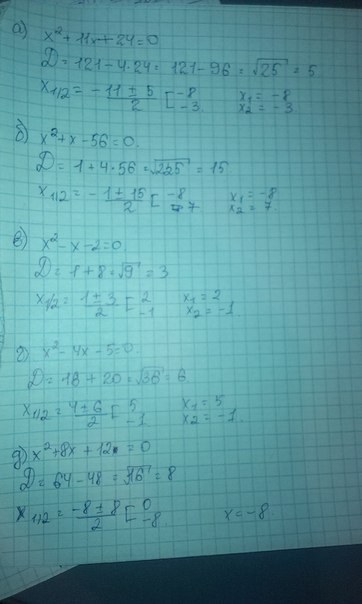 а) x²+11x+24=0
D=121-4·24=121-96=√25=5.
x1/2=-11±5/2 [-8 -3 x₁=-8 x₂=-3
б) x²+x-56=0.
D=1+4·56=√225=15
x1/2=-1±15/2 [-8 7 x₁=-8 x₂=7.
в) x²-x-2=0.
D=1+8=√9=3
x1/2=1±3/2 [2 -1 x₁=2 x₂=-1.
г) x²-4x-5=0.
D=18+20=√36=6
x1/2=4±6/2 [5 -1 x₁=5 x₂=-1.
д) x²+8x+12=0
D=64-48=√16=8
x1/2=-8±8/2 [0 -8 x=-8